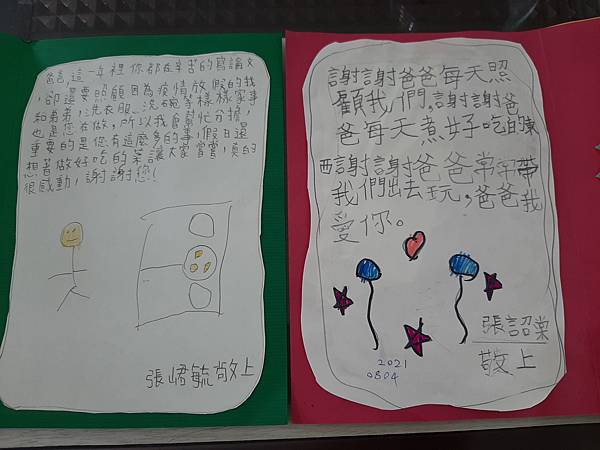 爸爸,這一年裡你都在辛苦的寫論文
,卻還要照顧因為疫情放假的我
和弟弟,洗衣服、洗碗等樣樣家事
也是您在做,所以我會幫忙分擔,
重要的是您有這麼多的事,假日還
想著做好吃的菜讓大家嘗嘗,真的
很感動,謝謝您!
張峮毓敬上
謝謝爸爸每天照
顧我,們,謝謝爸
爸每天煮好吃的東
西謝謝爸爸常常帶
我們出去玩,爸爸我
愛你。
張詔棠
敬上
2021
0804